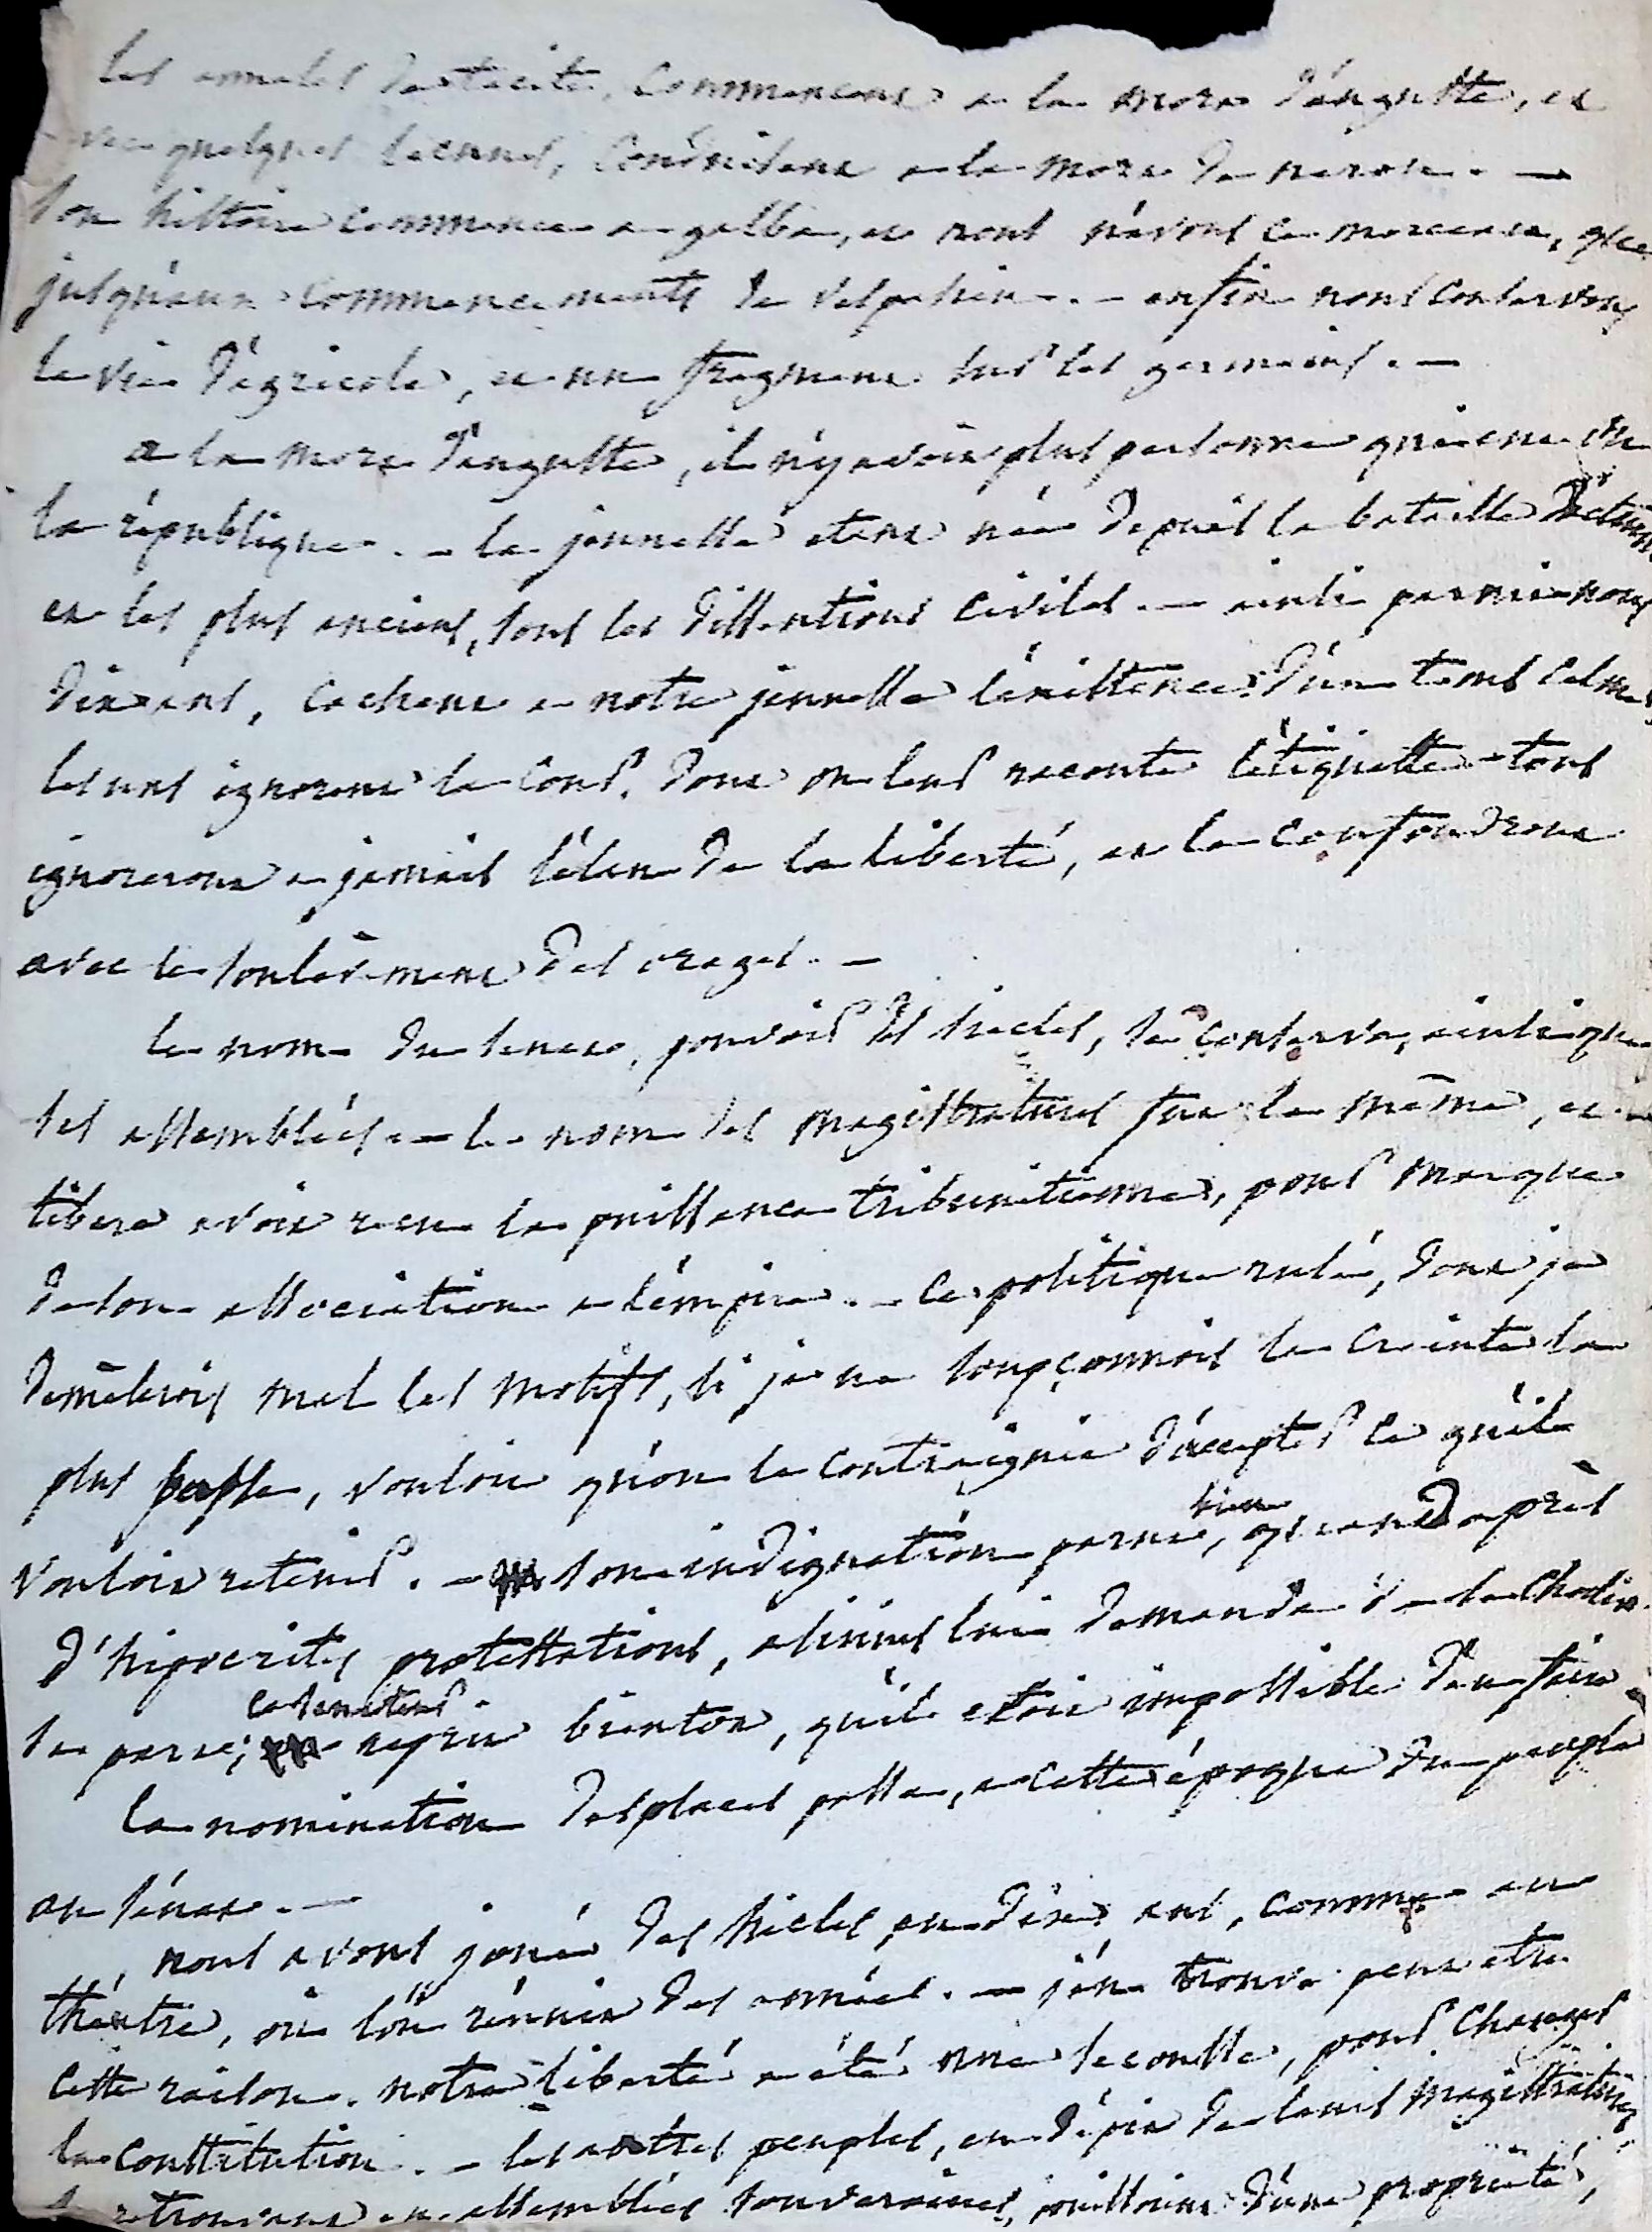 les annales de tacite, commencent a la mort d'auguste, et
avec quelques lacunes, conduisent a la mort de neron. —
son histoire commence a galba, et nous n'avons ce morceau, que
jusqu'aux commencements de vespasien. — enfin nous conservons
la vie d'agricola, et un fragment sur les germains. —
a la mort d'auguste, il n'y avoit plus personne qui eut vu
la république. — la jeunesse etant née depuis la bataille d'actium
et les plus anciens, sous les dissentions civiles. — ainsi parmi nous
dix ans, cachent a notre jeunesse l'existence d'un tems calme,
les uns ignorent la cour, dont on leur raconte l'étiquette – tous
ignoreront a jamais l'élan de la liberté, et la confondront
avec le soulèvement des orages. —
le nom du senat, pouvoir des siecles, se conserva, ainsi que
ses assemblées. — le nom des magistratures fut le même, et
tibere avoit reçu la puissance tribunitienne, pour marque
de son association a l'empire. — ce politique rusé, dont je
démêlerois mal les motifs, si je ne soupçonnois la crainte la
plus basse, vouloit qu'on le contraignit d'accepter ce qu'il
vouloit retenir. — son indignation parut bien, quand après
d'hipocrites protestations, asinius lui demanda de se choisir
sa part; ce senateur reprit bientot, qu'il etoit impossible d'en faire
la nomination des places passa, a cette époque du peuple
au sénat. —
nous avons joué des siecles, en dix ans, comme au
théatre, où l'on réunit des années. — j'en trouve peut etre
cette raison. notre liberté a été une secousse, pour changer
la constitution. — les autres peuples, en dépit de leurs magistratures,
se retrouvant en assemblées souveraines, jouissoient d'une propriété,